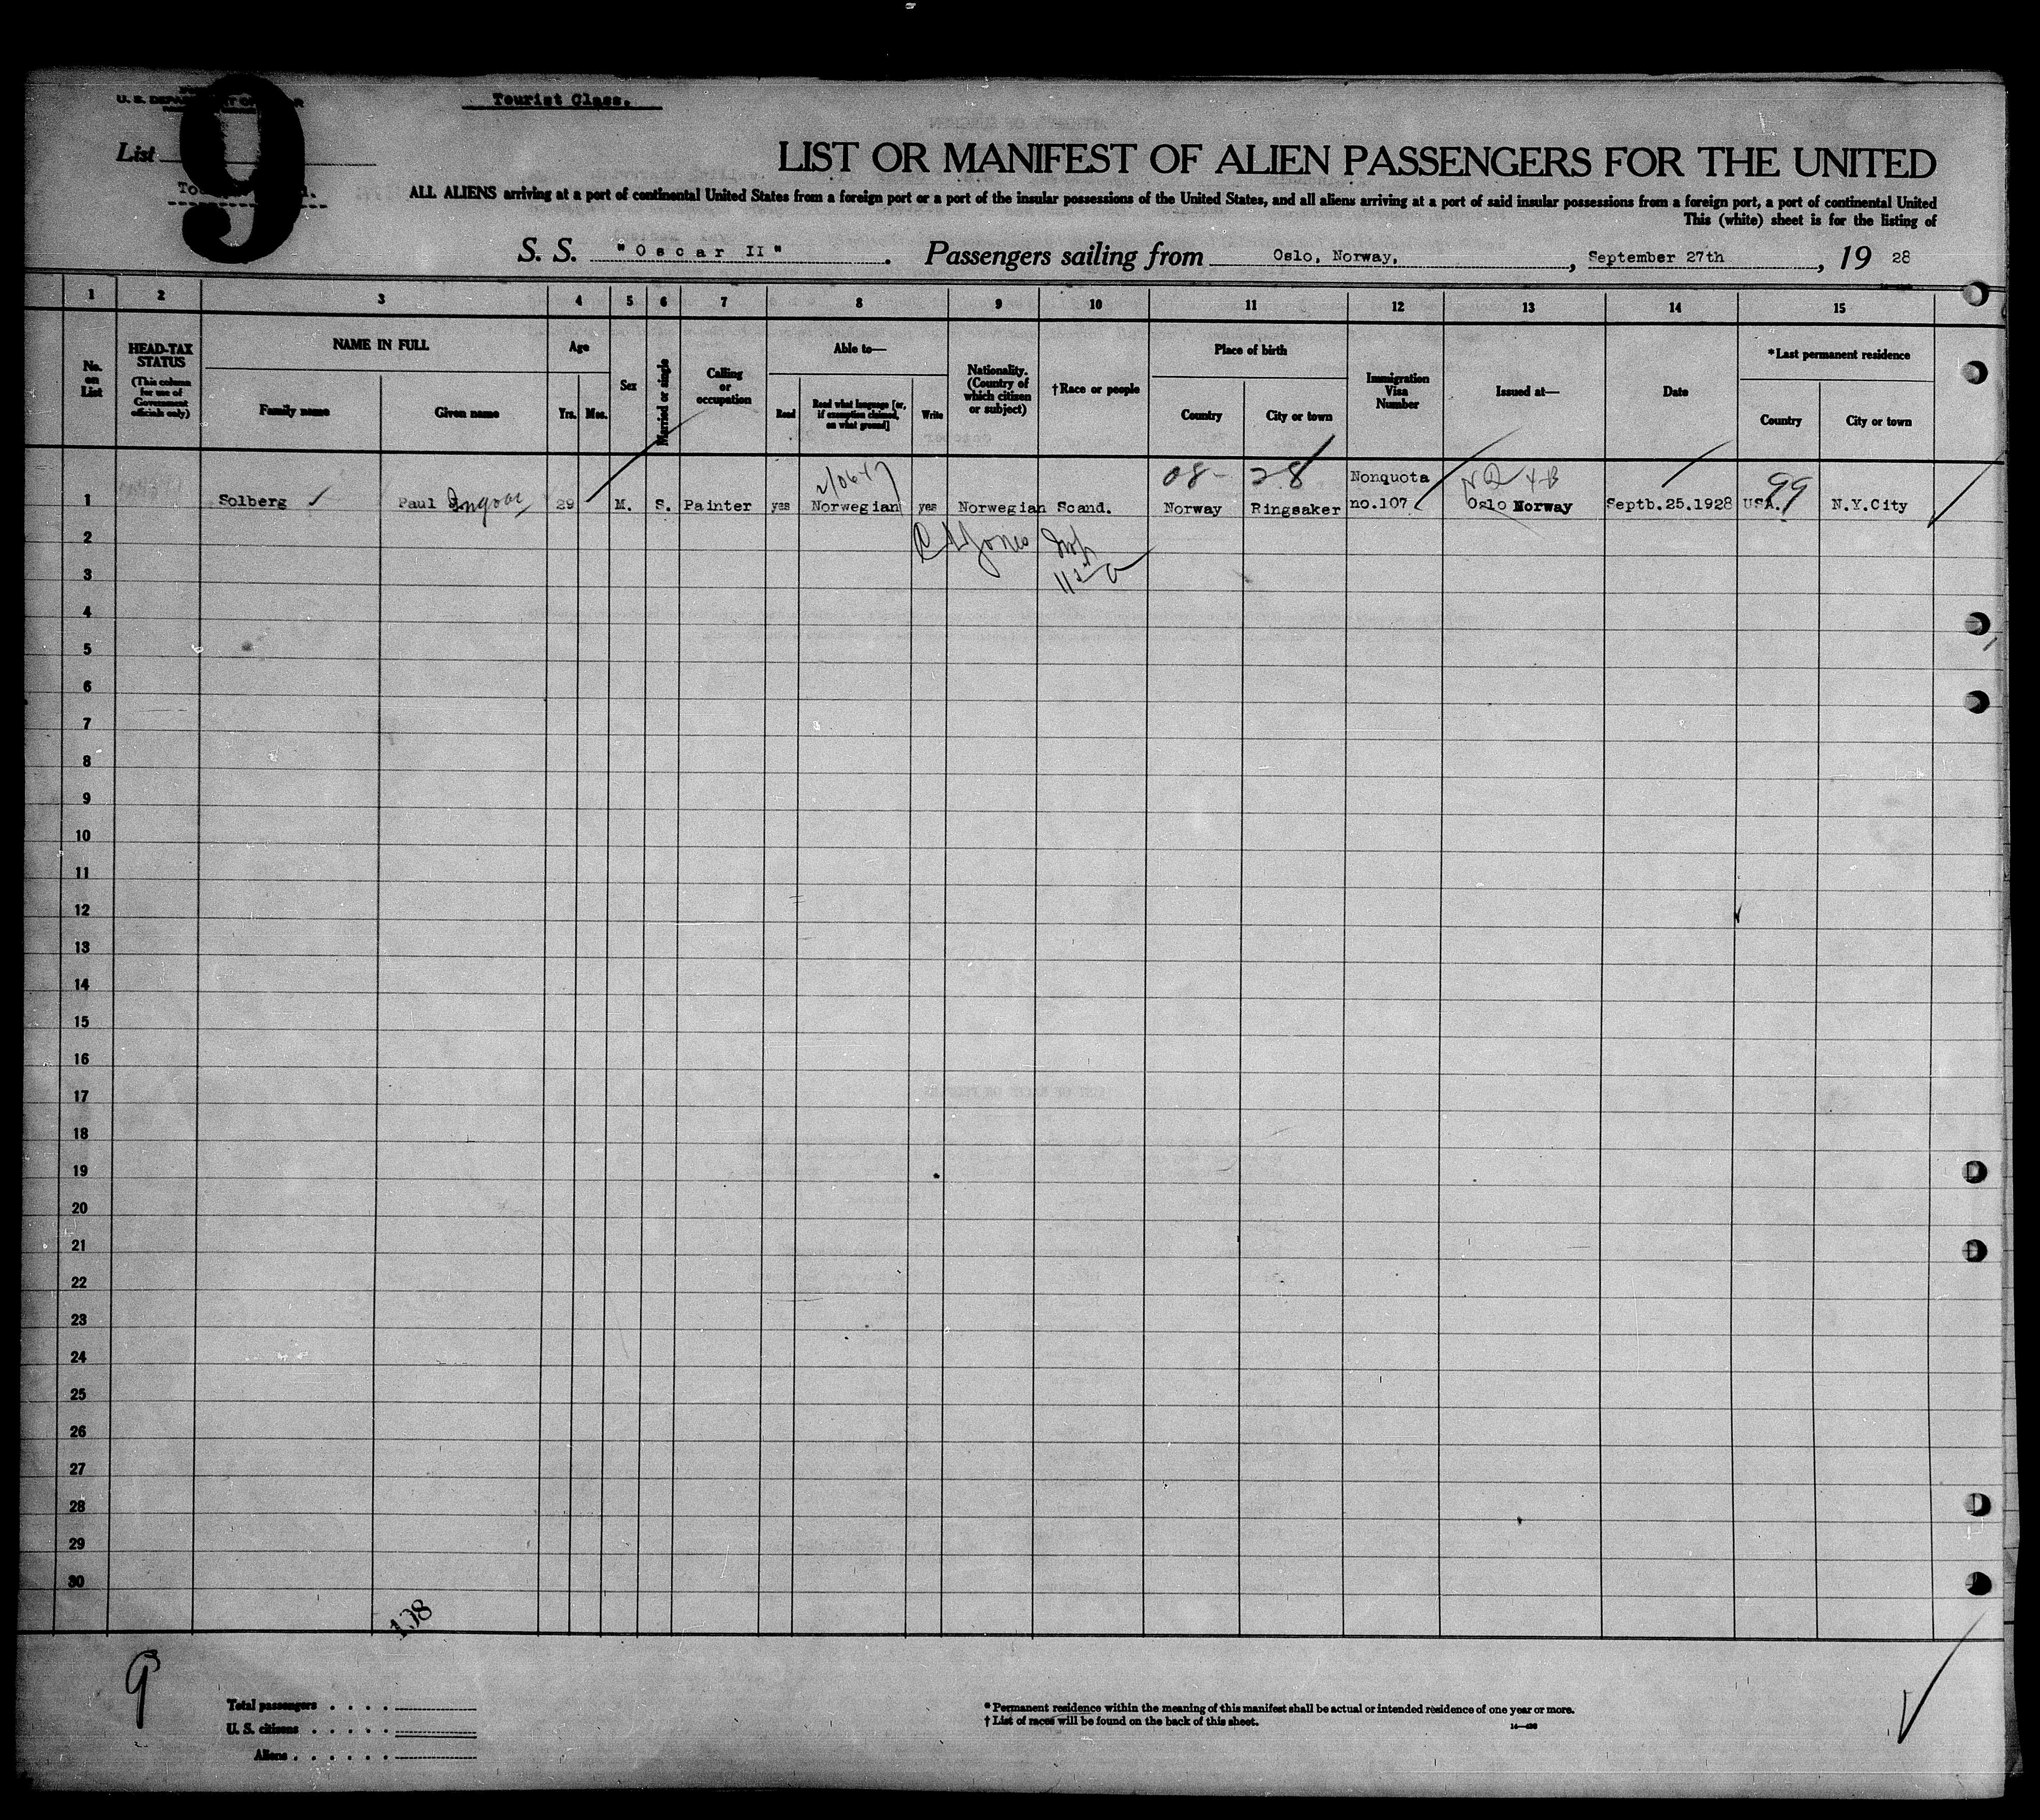 Tourist Class.
U. S.
9
List
LIST OR MANIFEST OF ALIEN PASSENGERS FOR THE UNITED
ALL ALIENS arriving at a port of continental United States from a foreign port or a port of the insular possessions of the United States, and all aliens arriving at a port of said insular possessions from a foreign port, a port of continental United
This (white) sheet is for the listing of
S. S. "Oscar II". Passengers sailing from Oslo, Norway, , September 27th , 19 28
1 2 3 4 5 6 7 8 9 10 11 12 13 14 15
No. on List
HEAD-TAX STATUS
(This column for use of Government officials only)
NAME IN FULL
Family name
Given name
Age
Yrs.
Mos.
Sex
Married or single
Calling or occupation
Able to—
Read
Read what language [or, if exemption claimed, on what ground]
Write
Nationality. (Country of which citizen or subject)
†Race or people
Place of birth
Country
City or town
Immigration Visa Number
Issued at—
Date
*Last permanent residence
Country
City or town
08- 28 NQ 4-B 99
1 Solberg Paul Ingvar 29 M. S. Painter yes Norwegian yes Norwegian Scand. Norway Ringsaker Nonquota no.107 Oslo Norway Septb.25.1928 USA. N.Y.City
2 Jones
3
4
5
6
7
8
9
10
11
12
13
14
15
16
17
18
19
20
21
22
23
24
25
26
27
28
29
30
108
9
Total passengers
U. S. citizens
Aliens
* Permanent residence within the meaning of this manifest shall be actual or intended residence of one year or more.
† List of races will be found on the back of this sheet.